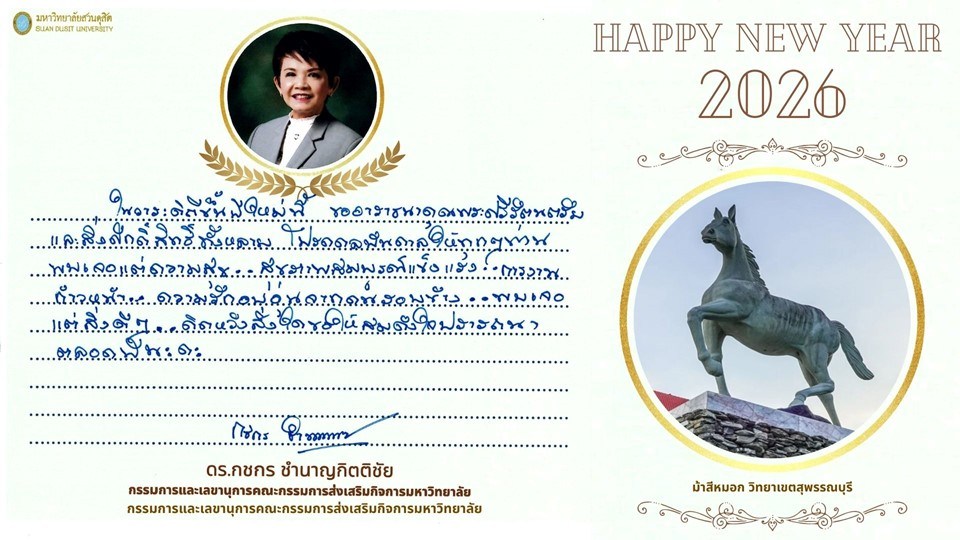 มหาวิทยาลัยสวนดุสิต
SUAN DUSIT UNIVERSITY
ในวาระดิถีขึ้นปีใหม่นี้ ขออาราธนาคุณพระศรีรัตนตรัย
และสิ่งศักดิ์สิทธิ์ทั้งหลาย โปรดดลบันดาลให้ทุกๆท่าน
พบเจอแต่ความสุข...สุขภาพสมบูรณ์แข็งแรง...การงาน
ก้าวหน้า...ความรักอบอุ่นจากคนรอบข้าง...พบเจอ
แต่สิ่งดีๆ...คิดหวังสิ่งใดขอให้สมดังใจปรารถนา
ตลอดปีนะคะ
กชกร
ดร.กชกร ชำนาญกิตติชัย
กรรมการและเลขานุการคณะกรรมการส่งเสริมกิจการมหาวิทยาลัย
กรรมการและเลขานุการคณะกรรมการส่งเสริมกิจการมหาวิทยาลัย
HAPPY NEW YEAR
2026
ม้าสีหมอก วิทยาเขตสุพรรณบุรี